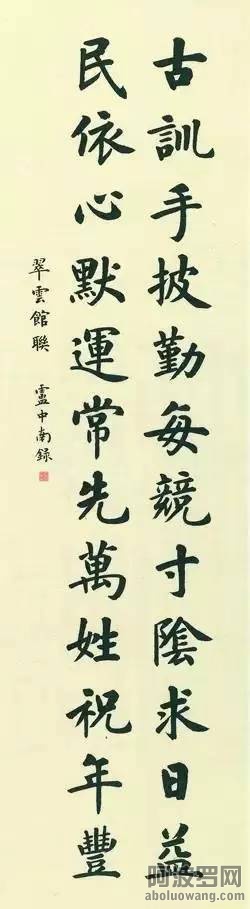 古訓手披勤每競寸陰求日益
民依心默運常先萬姓祝年豐
翠雲館聯 盧中南錄
阿波罗网
aboluowang.com